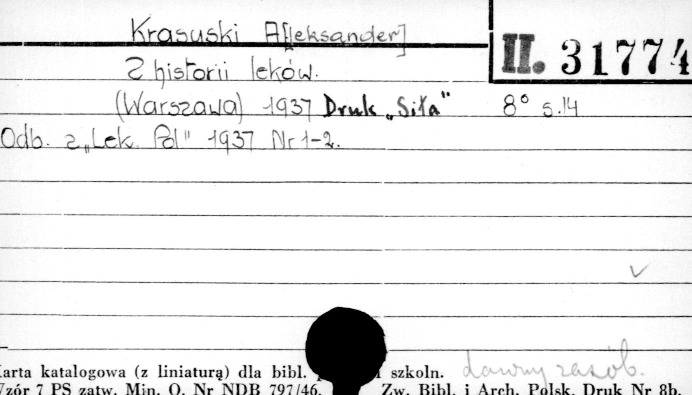 Krasuski A[leksander]
II. 31774
Z historii leków.
(Warszawa) 1937 Druk „Siła" 8° s.14
Odb. z „Lek. Pol" 1937 Nr 1-2.
Karta katalogowa (z liniaturą) dla bibl. i szkoln. dawny zasób.
Wzór 7 PS zatw. Min. O. Nr NDB 797/46. Zw. Bibl. i Arch. Polsk. Druk Nr 8b.